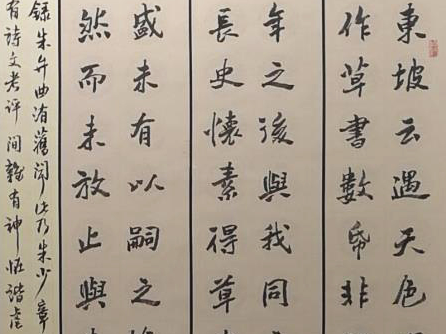 東坡云遇天色
作草書數紙非
年之後與我同
長史懷素得草
盛未有以嗣之
然而未放止與
錄朱弁曲洧舊聞此乃朱少章
有詩文考評間雜有神怪諧